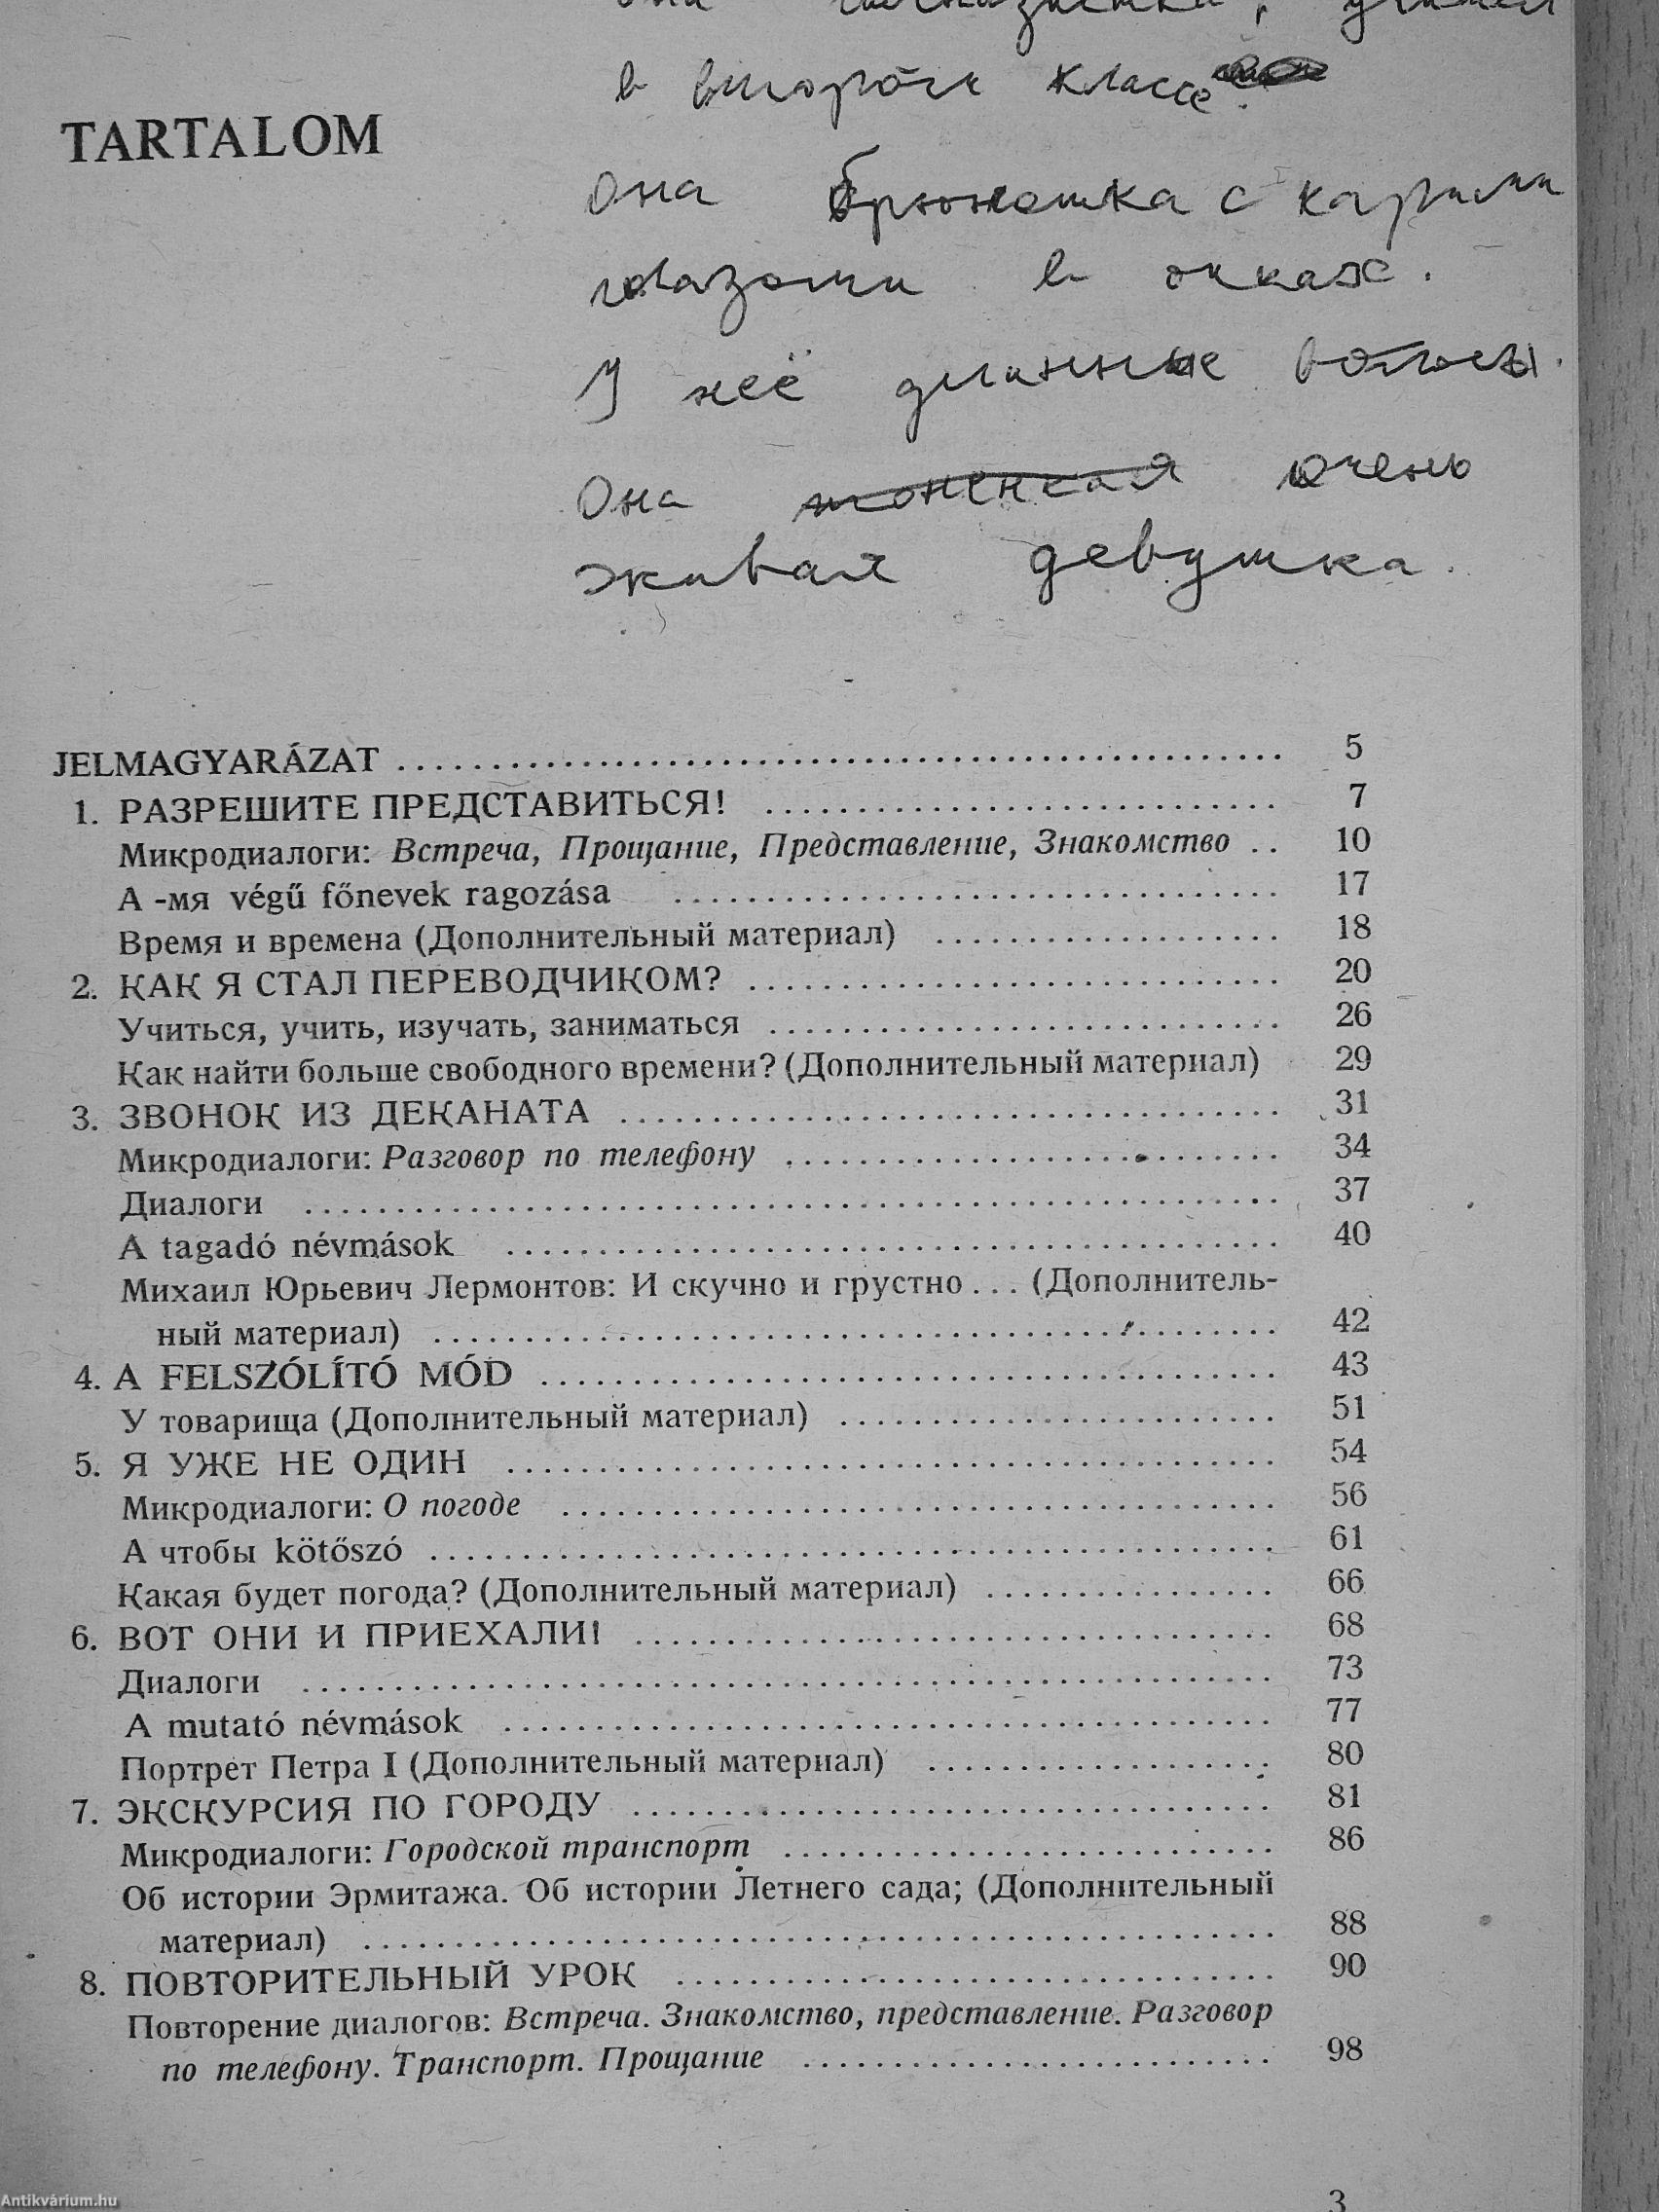 в втором классе.
TARTALOM
Она брюнетка с карими
глазами в очках.
У неё длинные волосы.
Она тоненькая очень
живая девушка.
JELMAGYARÁZAT 5
1. РАЗРЕШИТЕ ПРЕДСТАВИТЬСЯ! 7
Микродиалоги: Встреча, Прощание, Представление, Знакомство 10
A -мя végű főnevek ragozása 17
Время и времена (Дополнительный материал) 18
2. КАК Я СТАЛ ПЕРЕВОДЧИКОМ? 20
Учиться, учить, изучать, заниматься 26
Как найти больше свободного времени? (Дополнительный материал) 29
3. ЗВОНОК ИЗ ДЕКАНАТА 31
Микродиалоги: Разговор по телефону 34
Диалоги 37
A tagadó névmások 40
Михаил Юрьевич Лермонтов: И скучно и грустно... (Дополнитель-
ный материал) 42
4. A FELSZÓLÍTÓ MÓD 43
У товарища (Дополнительный материал) 51
5. Я УЖЕ НЕ ОДИН 54
Микродиалоги: О погоде 56
A чтобы kötőszó 61
Какая будет погода? (Дополнительный материал) 66
6. ВОТ ОНИ И ПРИЕХАЛИ! 68
Диалоги 73
A mutató névmások 77
Портрет Петра I (Дополнительный материал) 80
7. ЭКСКУРСИЯ ПО ГОРОДУ 81
Микродиалоги: Городской транспорт 86
Об истории Эрмитажа. Об истории Летнего сада; (Дополнительный
материал) 88
8. ПОВТОРИТЕЛЬНЫЙ УРОК 90
Повторение диалогов: Встреча. Знакомство, представление. Разговор
по телефону. Транспорт. Прощание 98
3
Antikvárium.hu